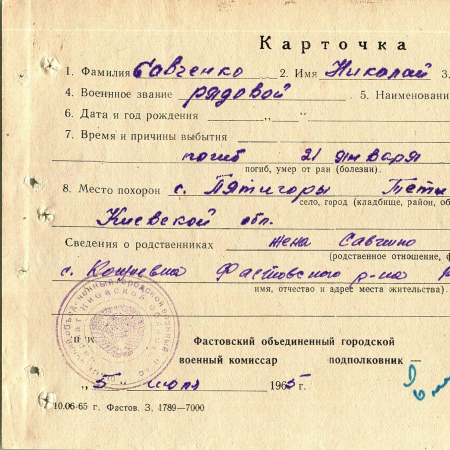 Карточка
1. Фамилия Савченко 2. Имя Николай 3.
4. Военнное звание рядовой 5. Наименовани
6. Дата и год рождения „ „
7. Время и причины выбытия
погиб 21 января
погиб, умер от ран (болезни).
8. Место похорон с. Пятигоры Тети
село, город (кладбище, район, об
Киевской обл.
Сведения о родственниках жена Савчино
(родственное отношение, ф
с. Кощеевка Фастовского р-на
имя, отчество и адрес места жительства).
М. П.
Фастовский объединенный городской
военный комиссар подполковник —
„5" июля 1965 г.
10.06-65 г. Фастов. З. 1789—7000